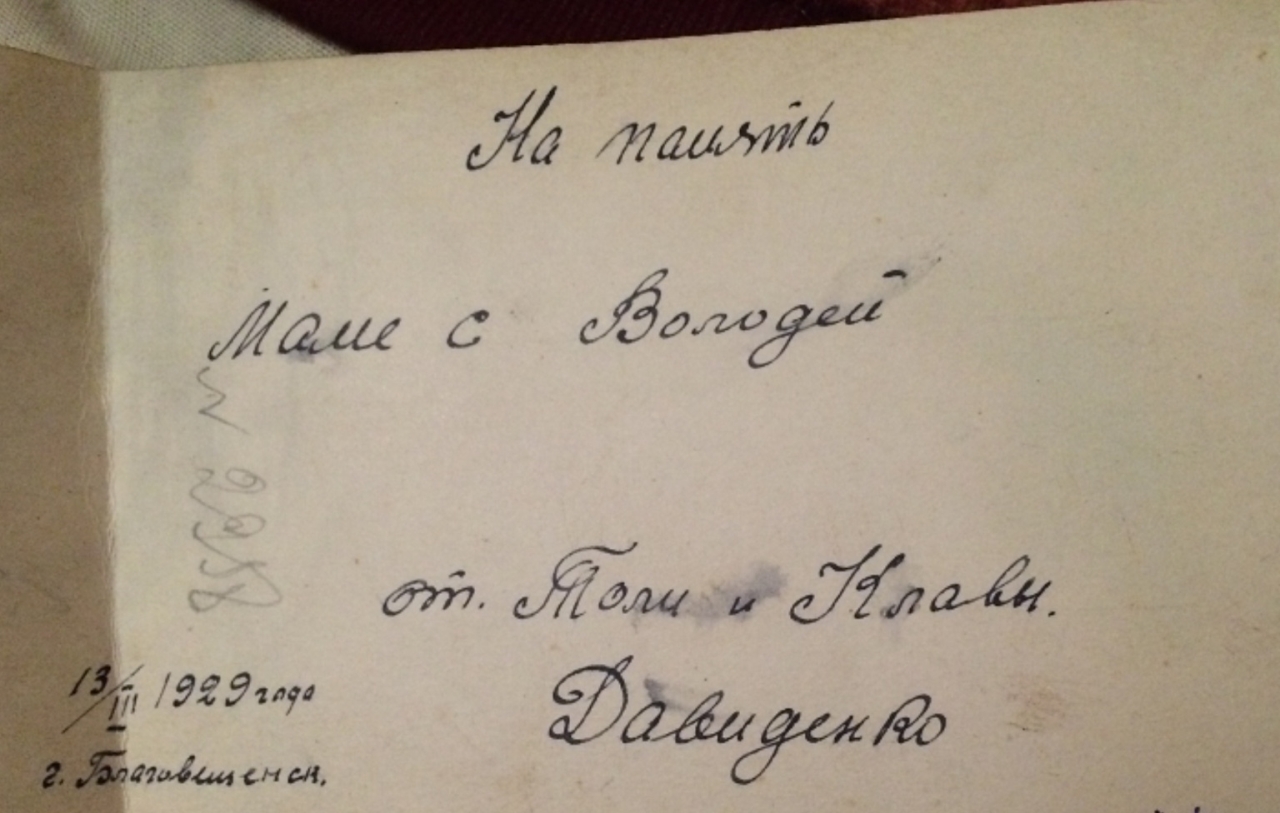 На память
Маме с Володей
от. Толи и Клавы.
Давиденко
13/III 1929 года
г. Благовещенск.